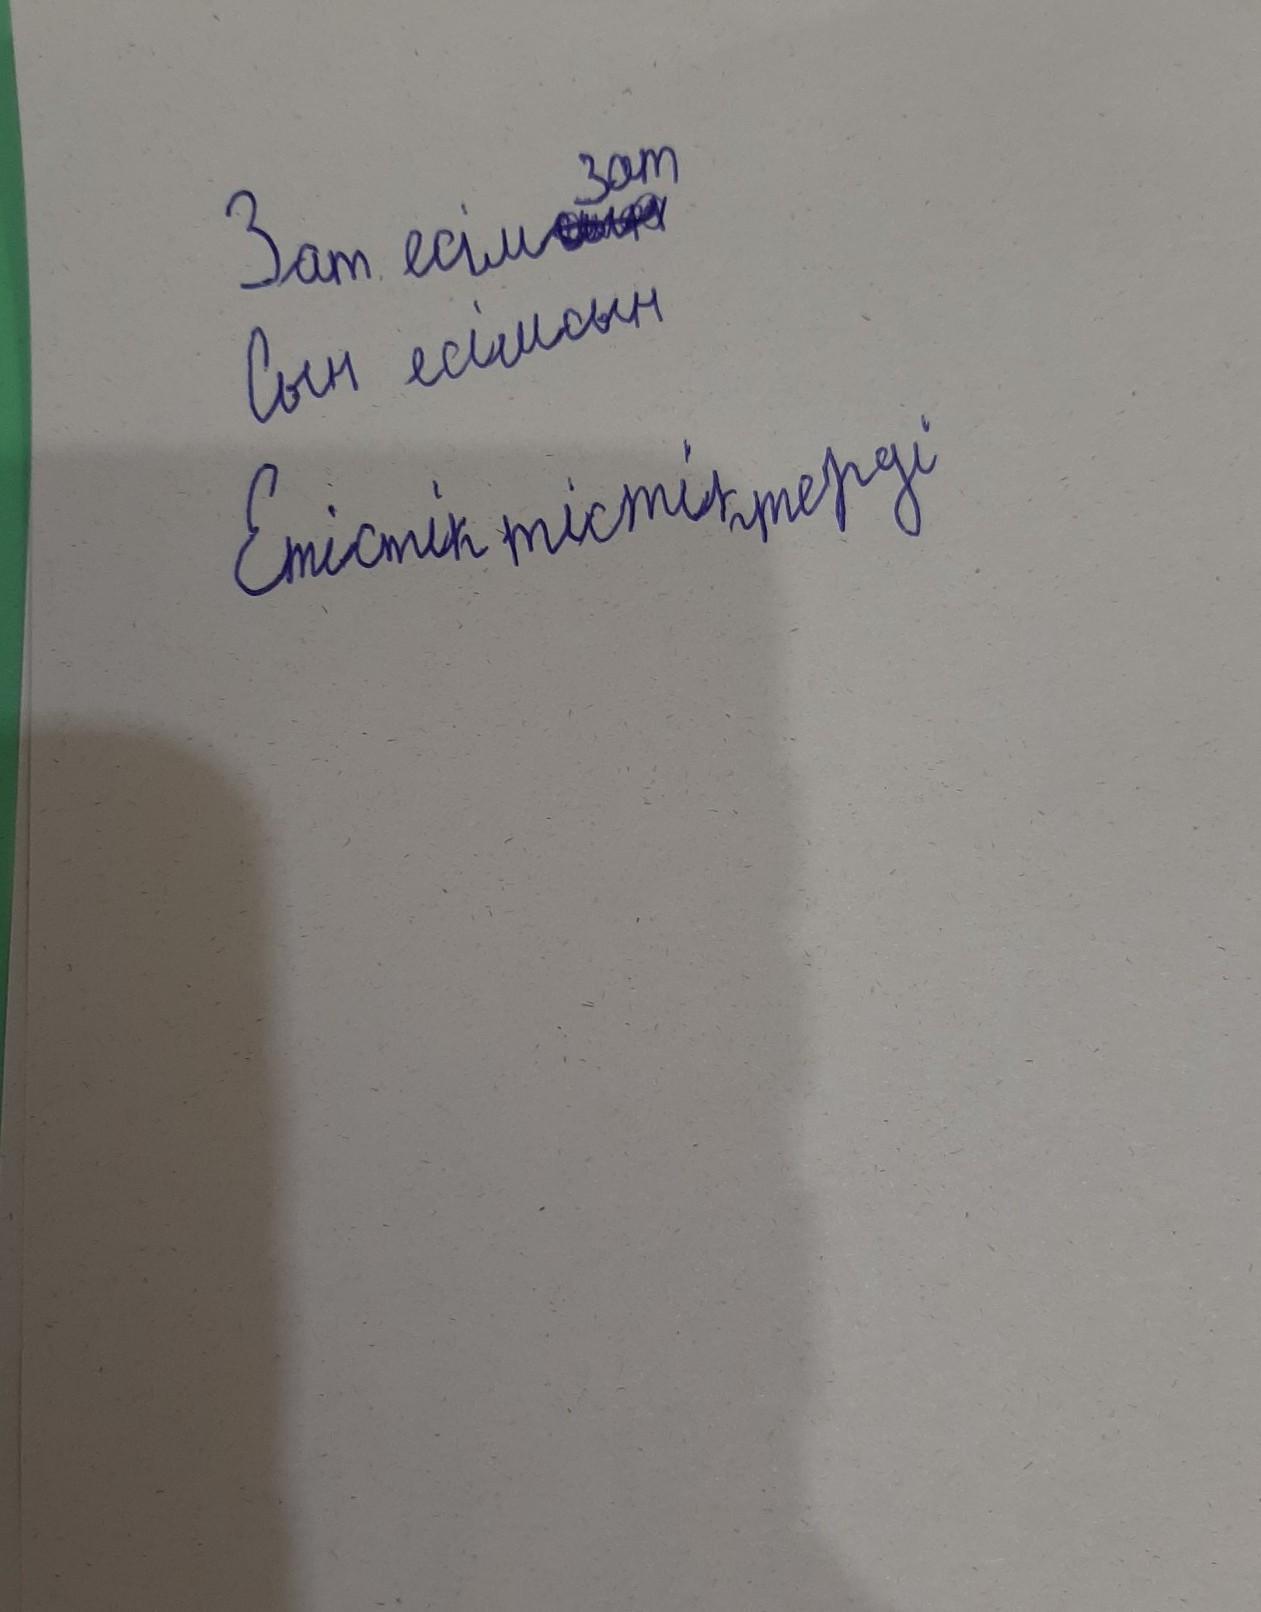 Зат есім зат
Сын есімсын
Етістік тістіктерді